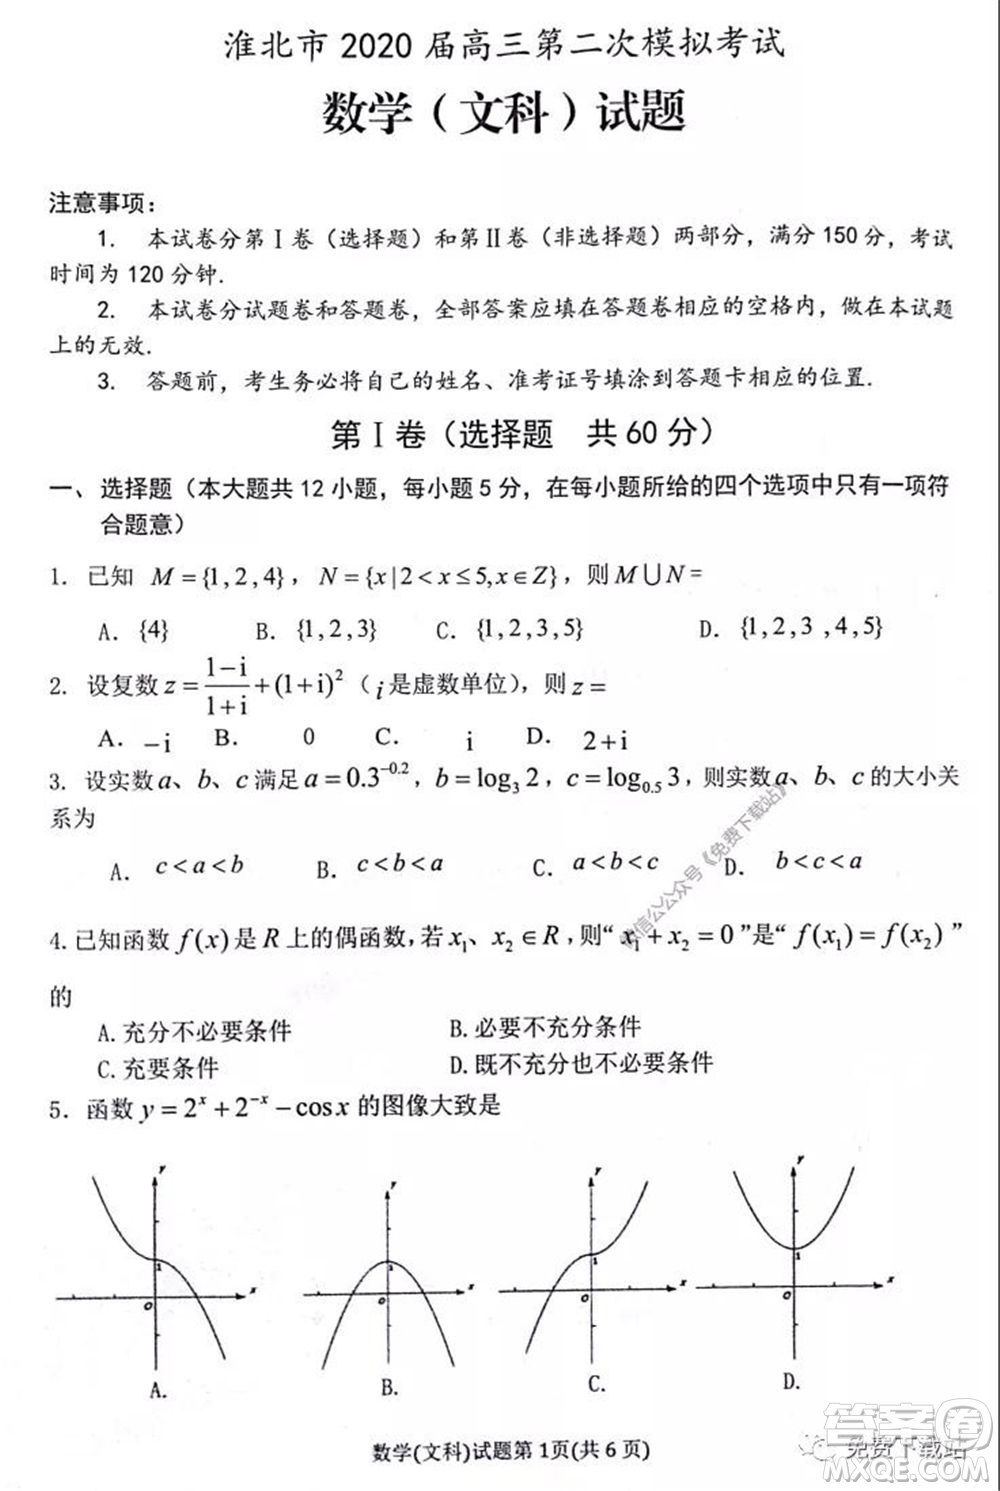 淮北市 2020 届高三第二次模拟考试
数学（文科）试题
注意事项：
1. 本试卷分第Ⅰ卷（选择题）和第Ⅱ卷（非选择题）两部分，满分 150 分，考试
时间为 120 分钟.
2. 本试卷分试题卷和答题卷，全部答案应填在答题卷相应的空格内，做在本试题
上的无效.
3. 答题前，考生务必将自己的姓名、准考证号填涂到答题卡相应的位置.
第Ⅰ卷（选择题 共 60 分）
一、选择题（本大题共 12 小题，每小题 5 分，在每小题所给的四个选项中只有一项符
合题意）
1. 已知 M={1,2,4}，N={x|2<x≤5,x∈Z}，则 M∪N=
A. {4} B. {1,2,3} C. {1,2,3,5} D. {1,2,3 ,4,5}
2. 设复数 z = (1-i)/(1+i) + (1+i)² （i 是虚数单位），则 z =
A. -i B. 0 C. i D. 2+i
3. 设实数 a、b、c 满足 a = 0.3^{-0.2}，b = log₃2，c = log_{0.5}3，则实数 a、b、c 的大小关
系为
A. c<a<b B. c<b<a C. a<b<c D. b<c<a
4. 已知函数 f(x) 是 R 上的偶函数，若 x₁、x₂∈R，则“ x₁+x₂=0 ”是“ f(x₁)=f(x₂) ”
的
A. 充分不必要条件 B. 必要不充分条件
C. 充要条件 D. 既不充分也不必要条件
5. 函数 y = 2^x + 2^{-x} - cosx 的图像大致是
y 1 O x
y 1 O x
y 1 O x
y 1 O x
A. B. C. D.
数学(文科)试题第 1页(共 6 页)
微信公众号《免费下载站》
免费下载站
答案圈
MXQE.COM